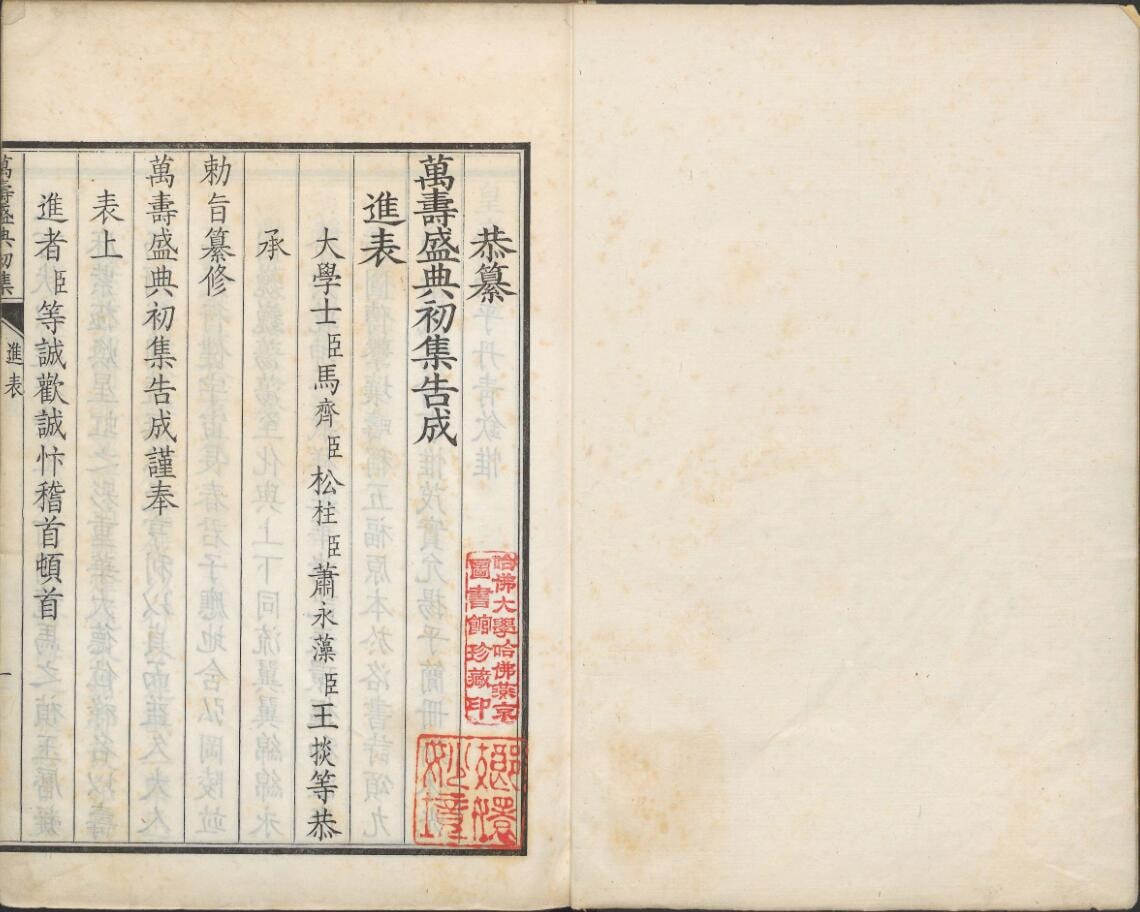 恭纂
萬壽盛典初集告成
進表
大學士臣馬齊臣松柱臣蕭永藻臣王掞等恭
承
勅旨纂修
萬壽盛典初集告成謹奉
表上
進者臣等誠歡誠忭稽首頓首
萬壽盛典初集
進表
一
哈佛大學哈佛燕京
圖書館珍藏印
嫏嬛
妙境